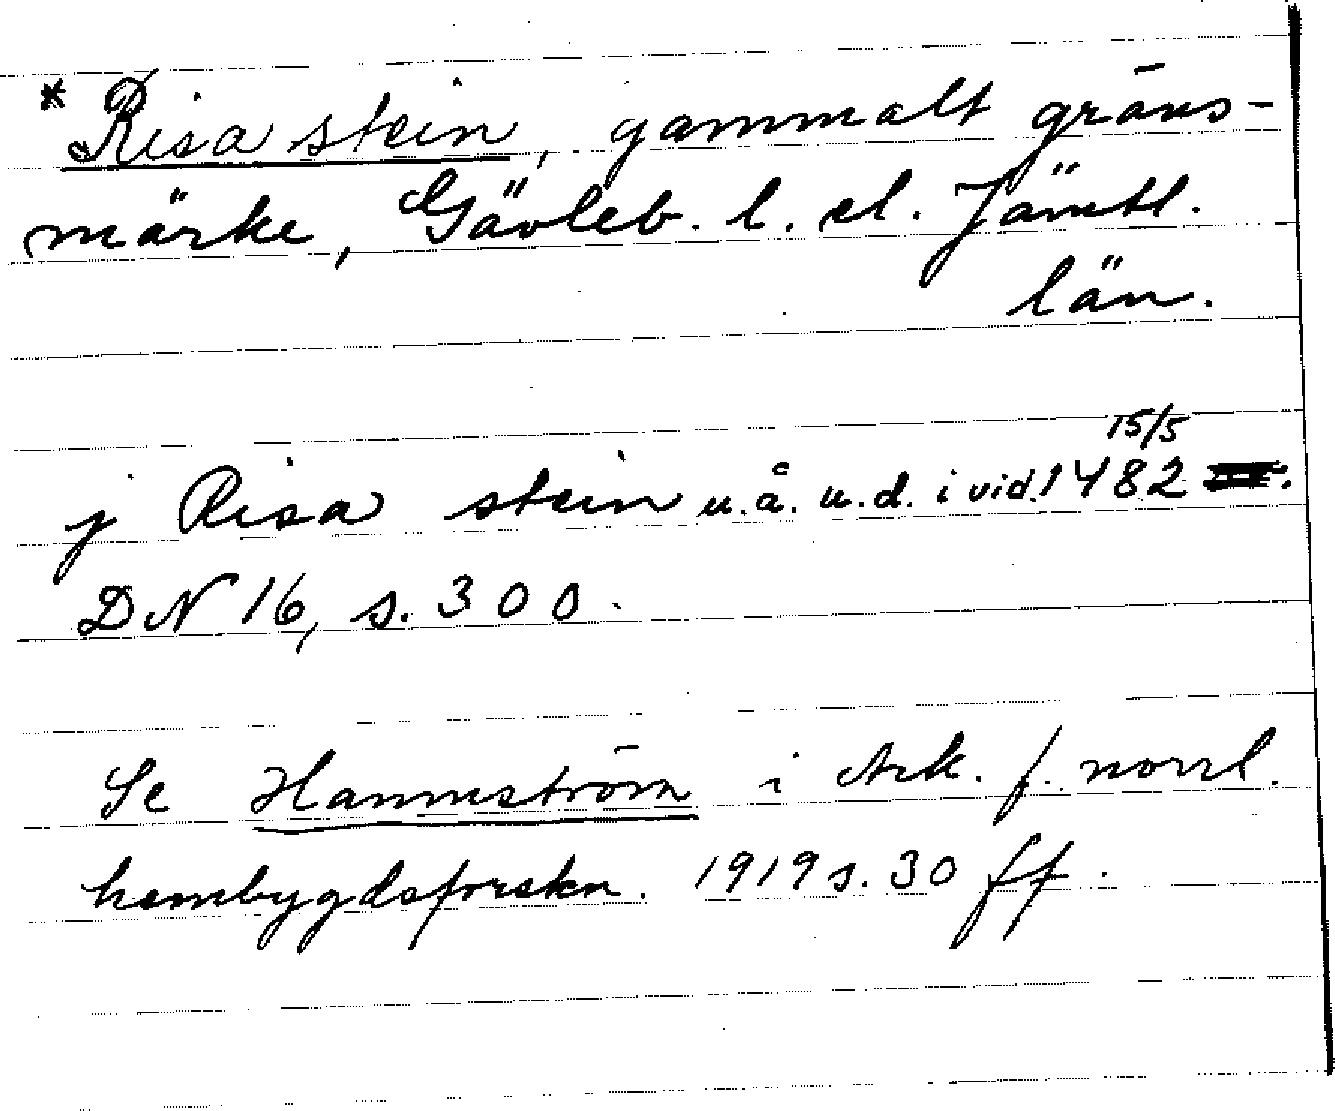 * Risa stein, gammalt gräns-
märke, Gävleb. l. el. Jämtl.
län.
15/5
j Risa stein u.å. u.d. i vid. 1482.
DN 16, s. 300.
Se Hammström i Ark. f. norrl.
hembygdsforskn. 1919 s. 30 ff.